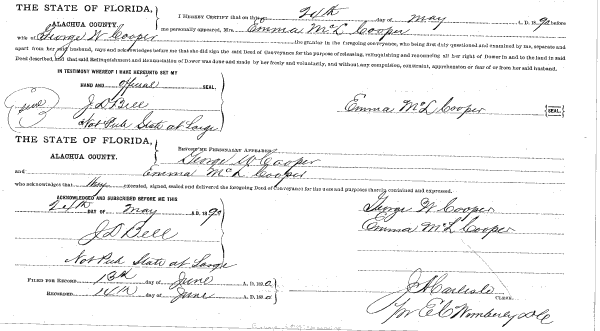 THE STATE OF FLORIDA,
ALACHUA COUNTY.
I HEREBY CERTIFY that on this 24th day of May A. D. 1890 before
me personally appeared, Mrs. Emma McL Cooper
wife of George W Cooper the grantor in the foregoing conveyance, who being first duly questioned and examined by me, separate and
apart from her said husband, says and acknowledges before me that she did sign the said Deed of Conveyance for the purpose of releasing, relinquishing and renouncing all her right of Dower in and to the land in said
Deed described, and that said Relinquishment and Renunciation of Dower was done and made by her freely and voluntarily, and without any compulsion, constraint, apprehension or fear of or from her said husband.
IN TESTIMONY WHEREOF I HAVE HEREUNTO SET MY
HAND AND official SEAL,
seal
J D Bell
Not Pub State at Large
Emma McL Cooper
SEAL.
THE STATE OF FLORIDA,
ALACHUA COUNTY.
BEFORE ME PERSONALLY APPEARED
George W Cooper
and Emma McL Cooper
who acknowledges that they executed, signed, sealed and delivered the foregoing Deed of Conveyance for the uses and purposes therein contained and expressed.
ACKNOWLEDGED AND SUBSCRIBED BEFORE ME THIS
24th DAY OF May A.D. 1890
J D Bell
Not Pub State at Large
George W. Cooper
Emma McL Cooper
FILED FOR RECORD 13th day of June A. D. 1890
RECORDED 14th day of June A. D. 1890
J A Carlisle
CLERK.
Pr E C Wimberly D C